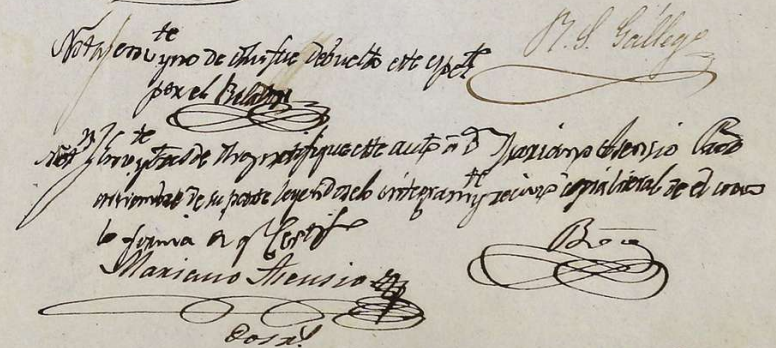 R. S. Gallego
Nota en veinte y uno de dho fue debuelto este expte
por el Relator
Not en veinte y tres de dho notifique este auto a Dn Mariano Asensio Procor
en nombre de su parte leyendoselo integramte y recivio copia literal de el como
lo firma de q Certifo
Mariano Asensio